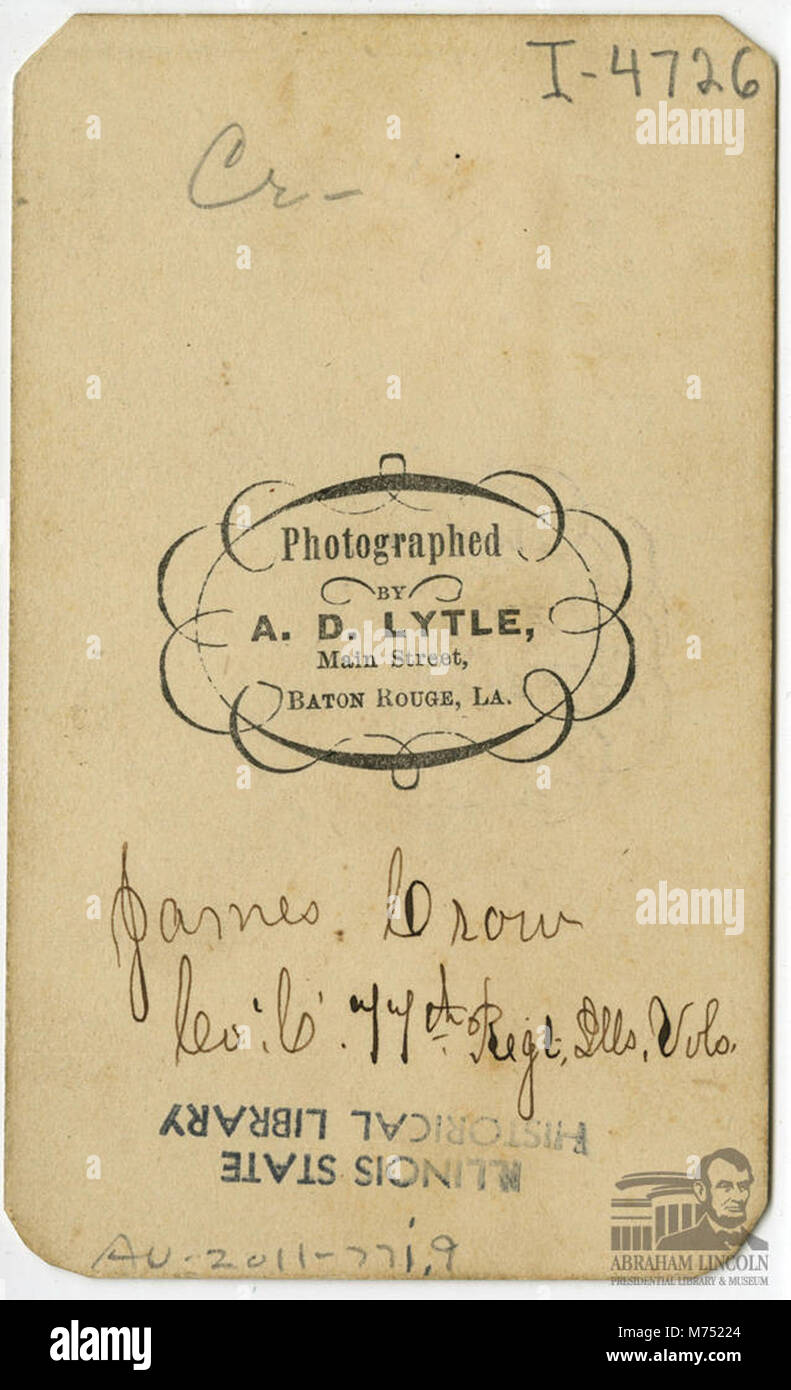 I-4726
ABRAHAM LINCOLN
Cr-
Photographed
BY
A. D. LYTLE,
Main Street,
BATON ROUGE, LA.
James. Crow
Co. 'C'. 77th Regt, Ills, Vols.
ILLINOIS STATE
HISTORICAL LIBRARY
AU-2011-771,9
ABRAHAM LINCOLN
PRESIDENTIAL LIBRARY & MUSEUM
a
alamy
alamy
alamy
Image ID: M75224
www.alamy.com